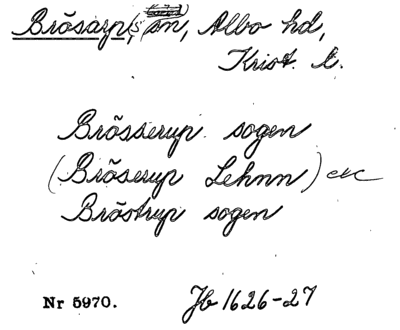 Brösarps sn, Albo hd,
Krist. l.
Brösserup sogen
(Bröserup Lehnn) etc
Bröstrup sogen
Nr 5970. Jb 1626-27